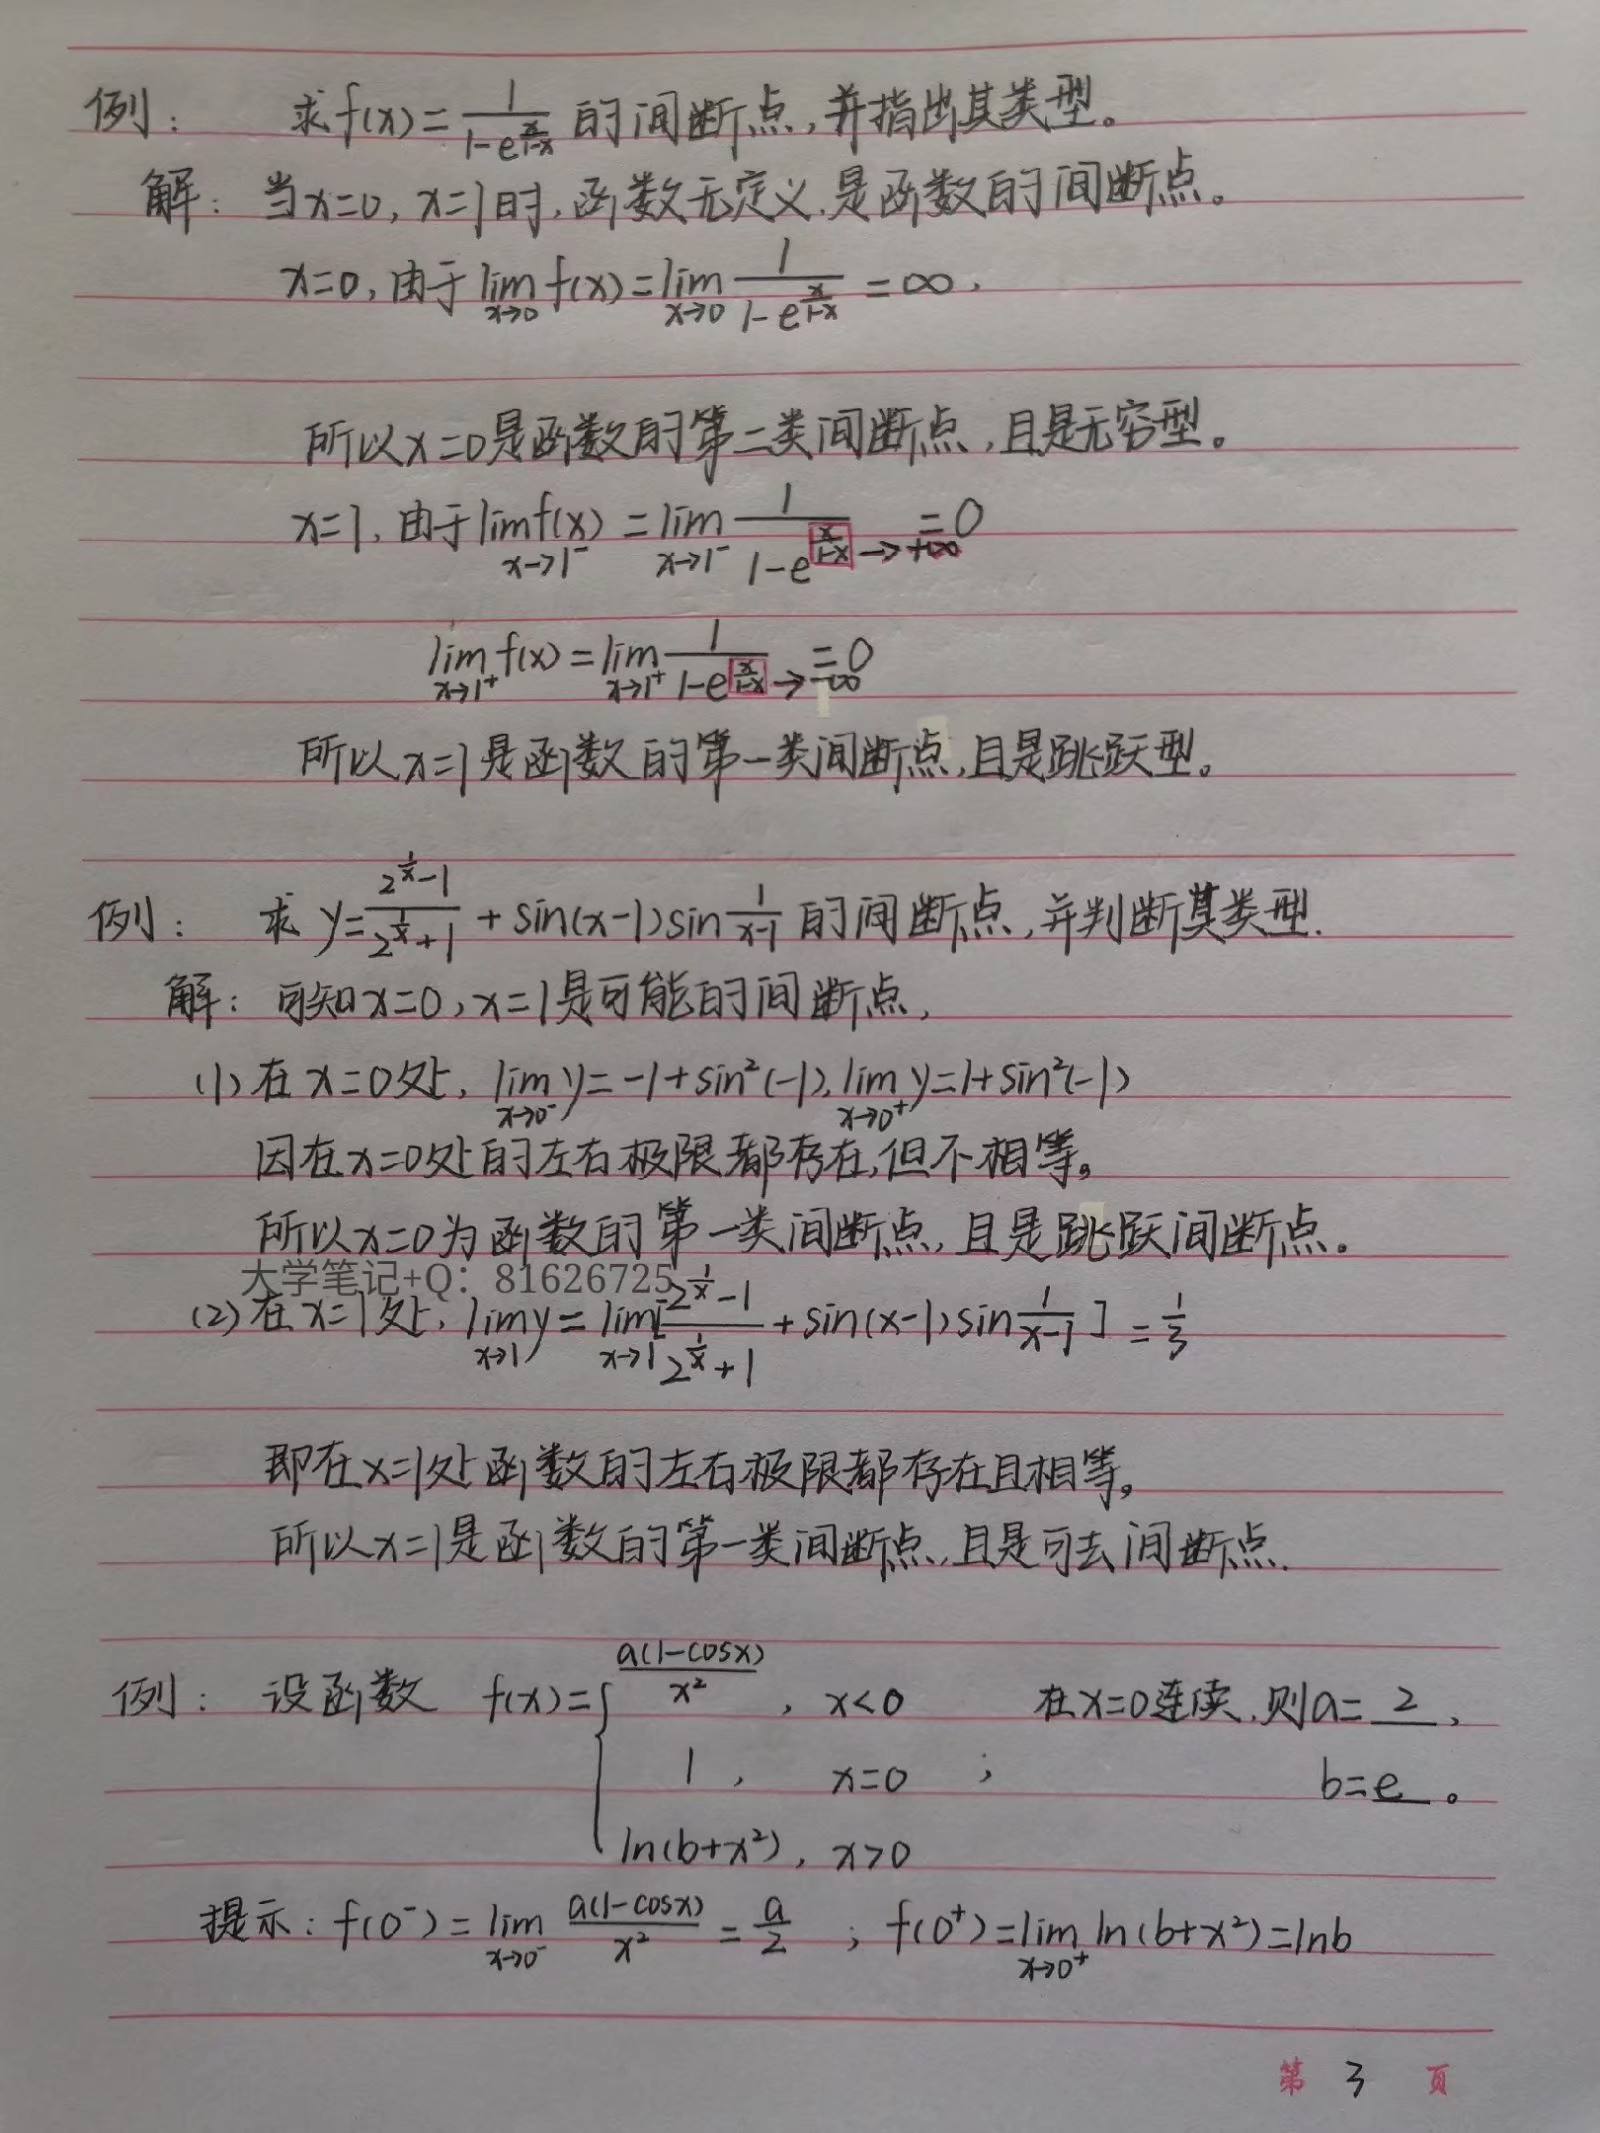 例： 求f(x)=\frac{1}{1-e^{\frac{x}{1-x}}}的间断点,并指出其类型。
解：当x=0, x=1时,函数无定义,是函数的间断点。
x=0,由于\lim_{x→0}f(x)=\lim_{x→0}\frac{1}{1-e^{\frac{x}{1-x}}}=∞,
所以x=0是函数的第二类间断点,且是无穷型。
x=1,由于\lim_{x→1^-}f(x)=\lim_{x→1^-}\frac{1}{1-e^{\frac{x}{1-x}→+∞}}=0
\lim_{x→1^+}f(x)=\lim_{x→1^+}\frac{1}{1-e^{\frac{x}{1-x}→-∞}}=0
所以x=1是函数的第一类间断点,且是跳跃型。
例： 求y=\frac{2^{\frac{1}{x}}-1}{2^{\frac{1}{x}}+1}+sin(x-1)sin\frac{1}{x-1}的间断点,并判断其类型.
解：可知x=0,x=1是可能的间断点,
(1)在x=0处,\lim_{x→0^-}y=-1+sin^2(-1),\lim_{x→0^+}y=1+sin^2(-1)
因在x=0处的左右极限都存在,但不相等。
所以x=0为函数的第一类间断点,且是跳跃间断点。
大学笔记+Q：81626725
(2)在x=1处,\lim_{x→1}y=\lim_{x→1}[\frac{2^{\frac{1}{x}}-1}{2^{\frac{1}{x}}+1}+sin(x-1)sin\frac{1}{x-1}]=\frac{1}{3}
即在x=1处函数的左右极限都存在且相等。
所以x=1是函数的第一类间断点,且是可去间断点.
例： 设函数 f(x)={\frac{a(1-cosx)}{x^2}, x<0 在x=0连续,则a=2,
1, x=0 ; b=e。
ln(b+x^2), x>0
提示：f(0^-)=\lim_{x→0^-}\frac{a(1-cosx)}{x^2}=\frac{a}{2} ; f(0^+)=\lim_{x→0^+}ln(b+x^2)=lnb
第 3 页